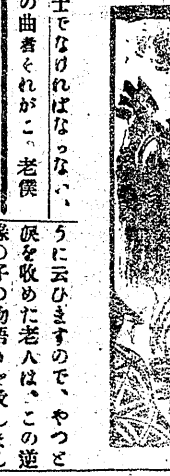 士でなければならない、
の曲者それがこ。老僕
うに云ひますので、やつと
涙を収めた老人は、この逆
の子の物語